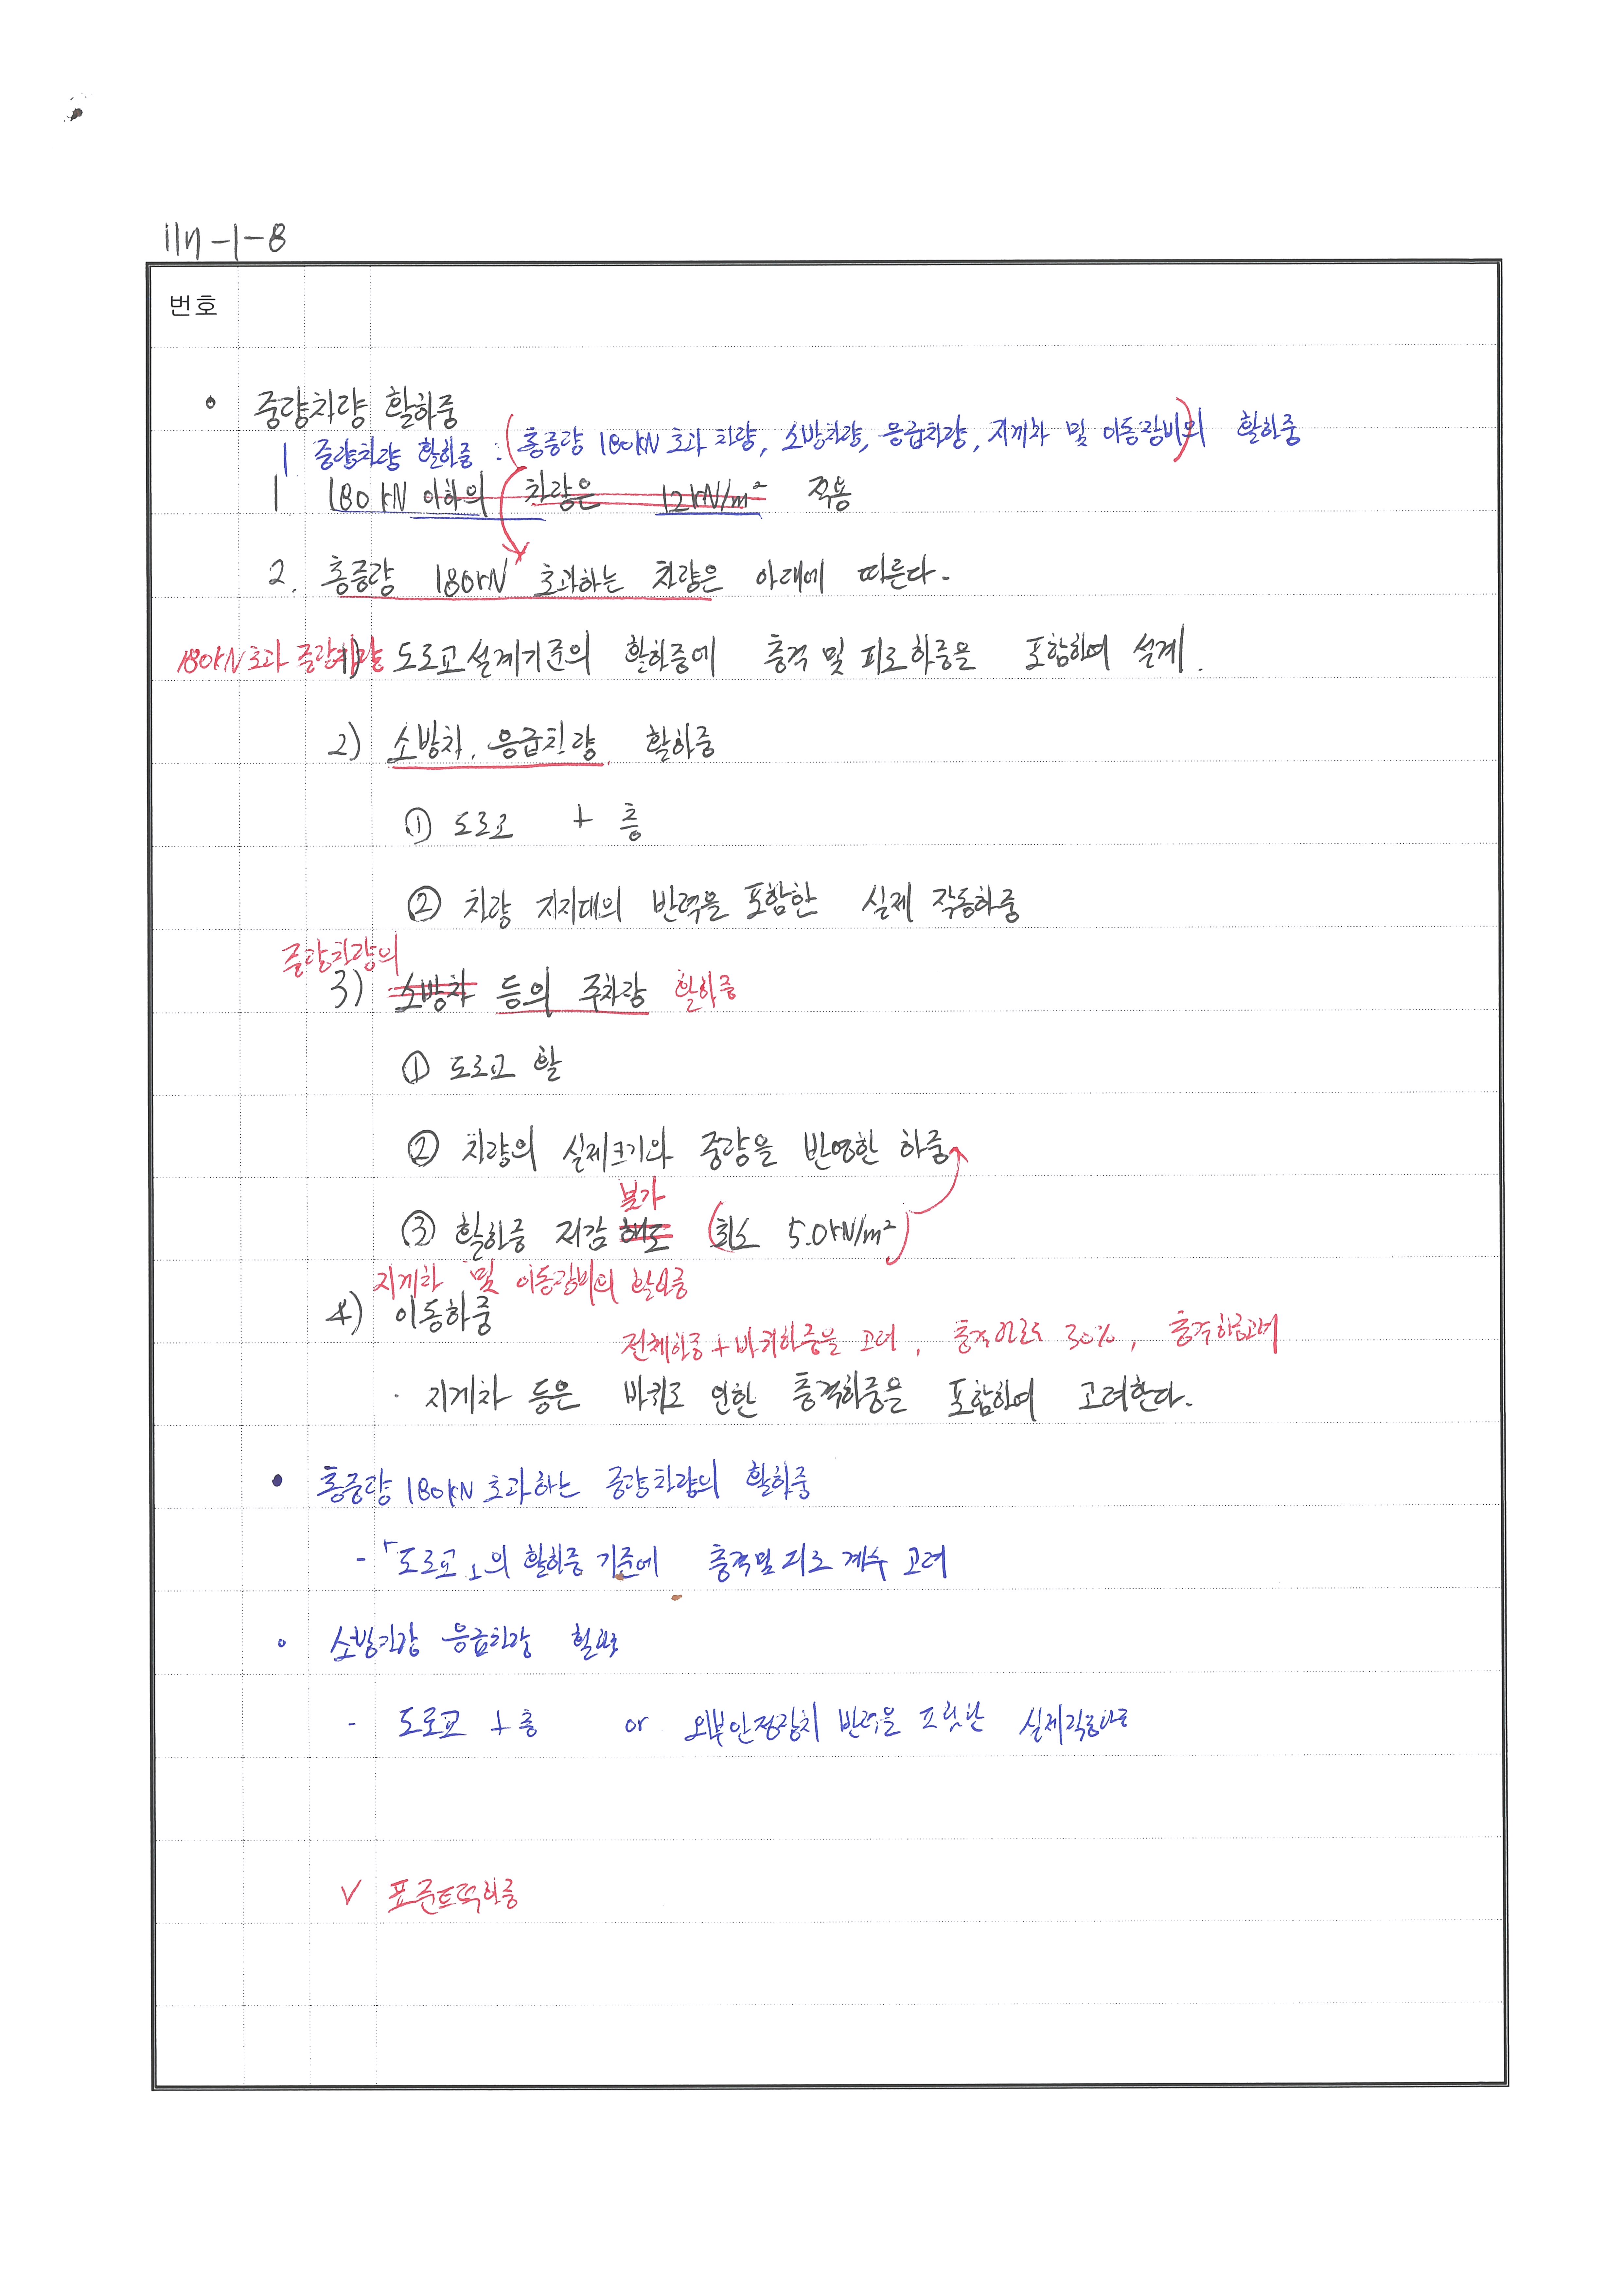 117-1-8
번호
• 중량차량 활하중
1 중량차량 활하중 : (총중량 180kN 초과 차량, 소방차량, 응급차량, 지게차 및 이동장비)의 활하중
1 180kN 이하의 차량은 12kN/m² 적용
2. 총중량 180kN 초과하는 차량은 아래에 따른다.
180kN 초과 중량차량
1) 도로교설계기준의 활하중에 충격 및 피로하중을 포함하여 설계.
2) 소방차, 응급차량 활하중
① 도로교 + 충
② 차량 지지대의 반력을 포함한 실제 작동하중
중량차량의
3) 소방차 등의 주차장 활하중
① 도로교 활
② 차량의 실제크기와 중량을 반영한 하중
불가
③ 활하중 저감 해도 (최소 5.0kN/m²)
지게차 및 이동장비의 활하중
4) 이동하중
전체하중+바퀴하중을 고려, 충격으로 30%, 충격하중고려
· 지게차 등은 바퀴로 인한 충격하중을 포함하여 고려한다.
• 총중량 180kN 초과하는 중량차량의 활하중
- 「도로교」의 활하중 기준에 충격및피로 계수 고려
• 소방차량 응급차량 활하중
- 도로교 + 충 or 외부안정장치 반력을 포함한 실제작동하중
✓ 표준트럭하중